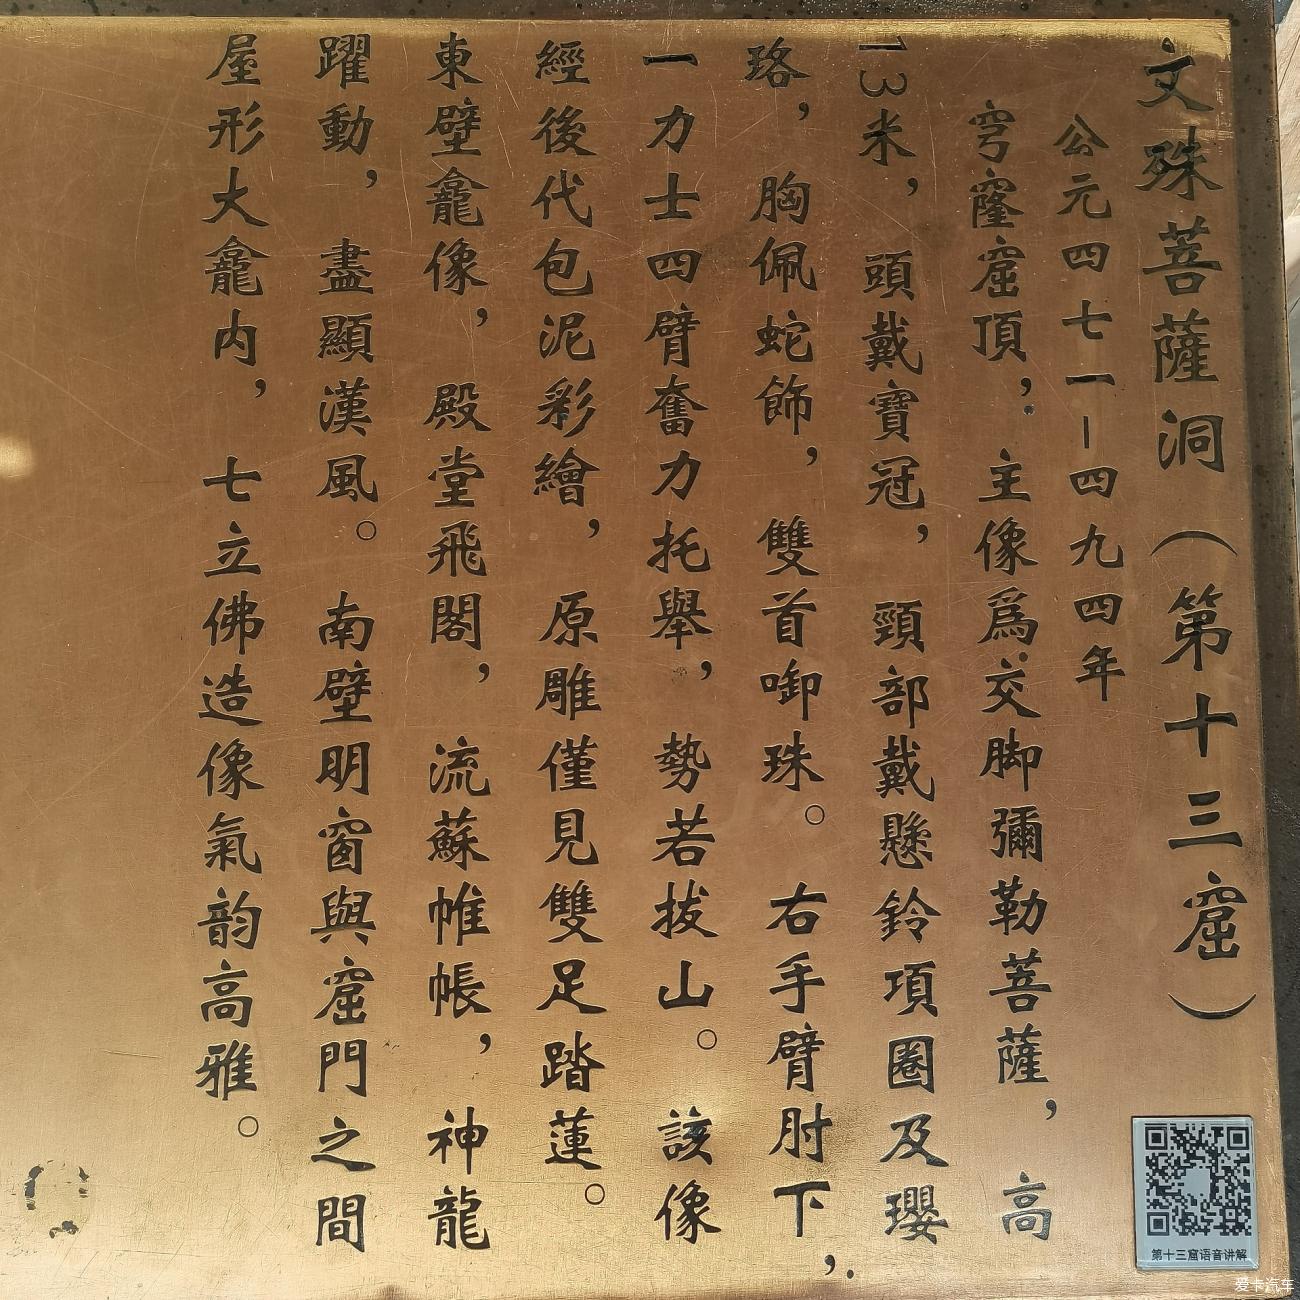 文殊菩薩洞（第十三窟）
公元四七一–四九四年
穹窿窟頂，主像爲交脚彌勒菩薩，高
13米，頭戴寶冠，頸部戴懸鈴項圈及瓔
珞，胸佩蛇飾，雙首啣珠。右手臂肘下，
一力士四臂奮力托舉，勢若拔山。該像
經後代包泥彩繪，原雕僅見雙足踏蓮。
東壁龕像，殿堂飛閣，流蘇帷帳，神龍
躍動，盡顯漢風。南壁明窗與窟門之間
屋形大龕内，七立佛造像氣韵高雅。
第十三窟语音讲解
爱卡汽车